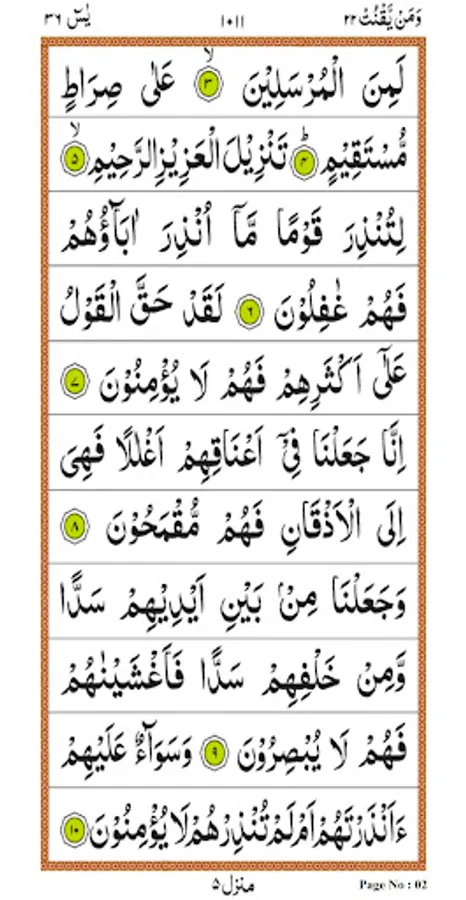 وَمَنْ يَّقْنُتْ ٢٢ ١٠١١ يٰسٓ ٣٦
لَمِنَ الْمُرْسَلِيْنَ ۙ‏﴿٣﴾ عَلٰى صِرَاطٍ
مُّسْتَقِيْمٍ ؕ‏﴿٤﴾ تَنْزِيْلَ الْعَزِيْزِ الرَّحِيْمِ ۙ‏﴿٥﴾
لِتُنْذِرَ قَوْمًا مَّاۤ اُنْذِرَ اٰبَآؤُهُمْ
فَهُمْ غٰفِلُوْنَ ﴿٦﴾ لَقَدْ حَقَّ الْقَوْلُ
عَلٰٓى اَكْثَرِهِمْ فَهُمْ لَا يُؤْمِنُوْنَ ﴿٧﴾
اِنَّا جَعَلْنَا فِيْۤ اَعْنَاقِهِمْ اَغْلٰلًا فَهِىَ
اِلَى الْاَذْقَانِ فَهُمْ مُّقْمَحُوْنَ ﴿٨﴾
وَجَعَلْنَا مِنْۢ بَيْنِ اَيْدِيْهِمْ سَدًّا
وَّمِنْ خَلْفِهِمْ سَدًّا فَاَغْشَيْنٰهُمْ
فَهُمْ لَا يُبْصِرُوْنَ ﴿٩﴾ وَسَوَآءٌ عَلَيْهِمْ
ءَاَنْذَرْتَهُمْ اَمْ لَمْ تُنْذِرْهُمْ لَا يُؤْمِنُوْنَ ﴿١٠﴾
منزل ۵ Page No : 02